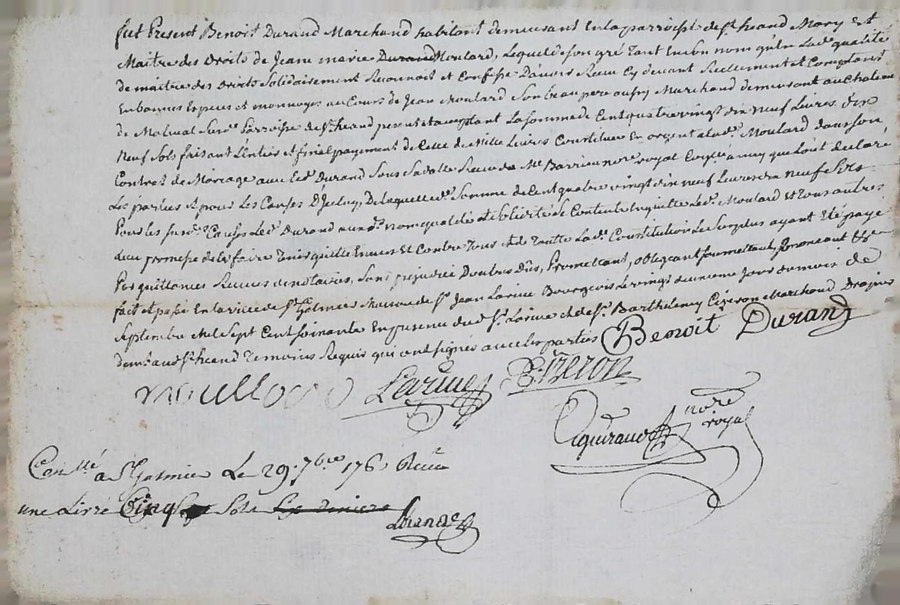 fut Present Benoit Durand Marchand habitant demeurant en la parroisse de St heand Mary Et
Maitre des Droits de Jeane marie Durand Moulard, Lequel de son gré tant en son nom qu'en Lad. qualité
de maitre des Droits Solidairement Reconnoit et Confesse D'avoir Receu Cy devant Reellement et Comptant
En bonnes Especes et monnoyes au Cours de Jean Moulard Son beau pere aussy Marchand demeurant au
de Malmal Parroisse de St heand present et acceptant La somme de Cent quatre vingt dix neuf Livres dix
Neuf Sols faisant L'entier et final payement de Celle de Mille Livres Constituée en argent aud. Moulard dans son
Contrat de Mariage avec Led. Durand Sous Sa datte Receu de Me Barrieu nore royal
Les parties Et pour Les Causes D'Iceluy, De laquelle ditte Somme de Cent quatre vingt dix neuf Livres dix neuf Sols
Durand aud. nom qualité Et Solidité Se Contente En quitte Led. Moulard Et tous autres
promesse de le faire tenir quitte Envers Et Contre tous Et de toutte Lad. Constitution Le Surplus ayant Eté payé
Par quittances Receues notaires, Sans prejudice Promettant, obligeant soumettant, Renonceant &a
fait et passé En la ville de St Galmier Maison de Sr Jean Larive Bourgeois Le vingt deuxieme Jour du mois de
Septembre mil Sept Cent Soixante En presence dud. Sr Larive Et de Sr Barthelemy Cizeron Marchand
demt aud. St heand Temoins Requis qui ont signé avec Les parties Benoit Durand
moullard Larive Cizeron
nore royal
Conllé a St Galmier Le 29. 7bre 176 Receu
une Livre Cinq Sols Six deniers